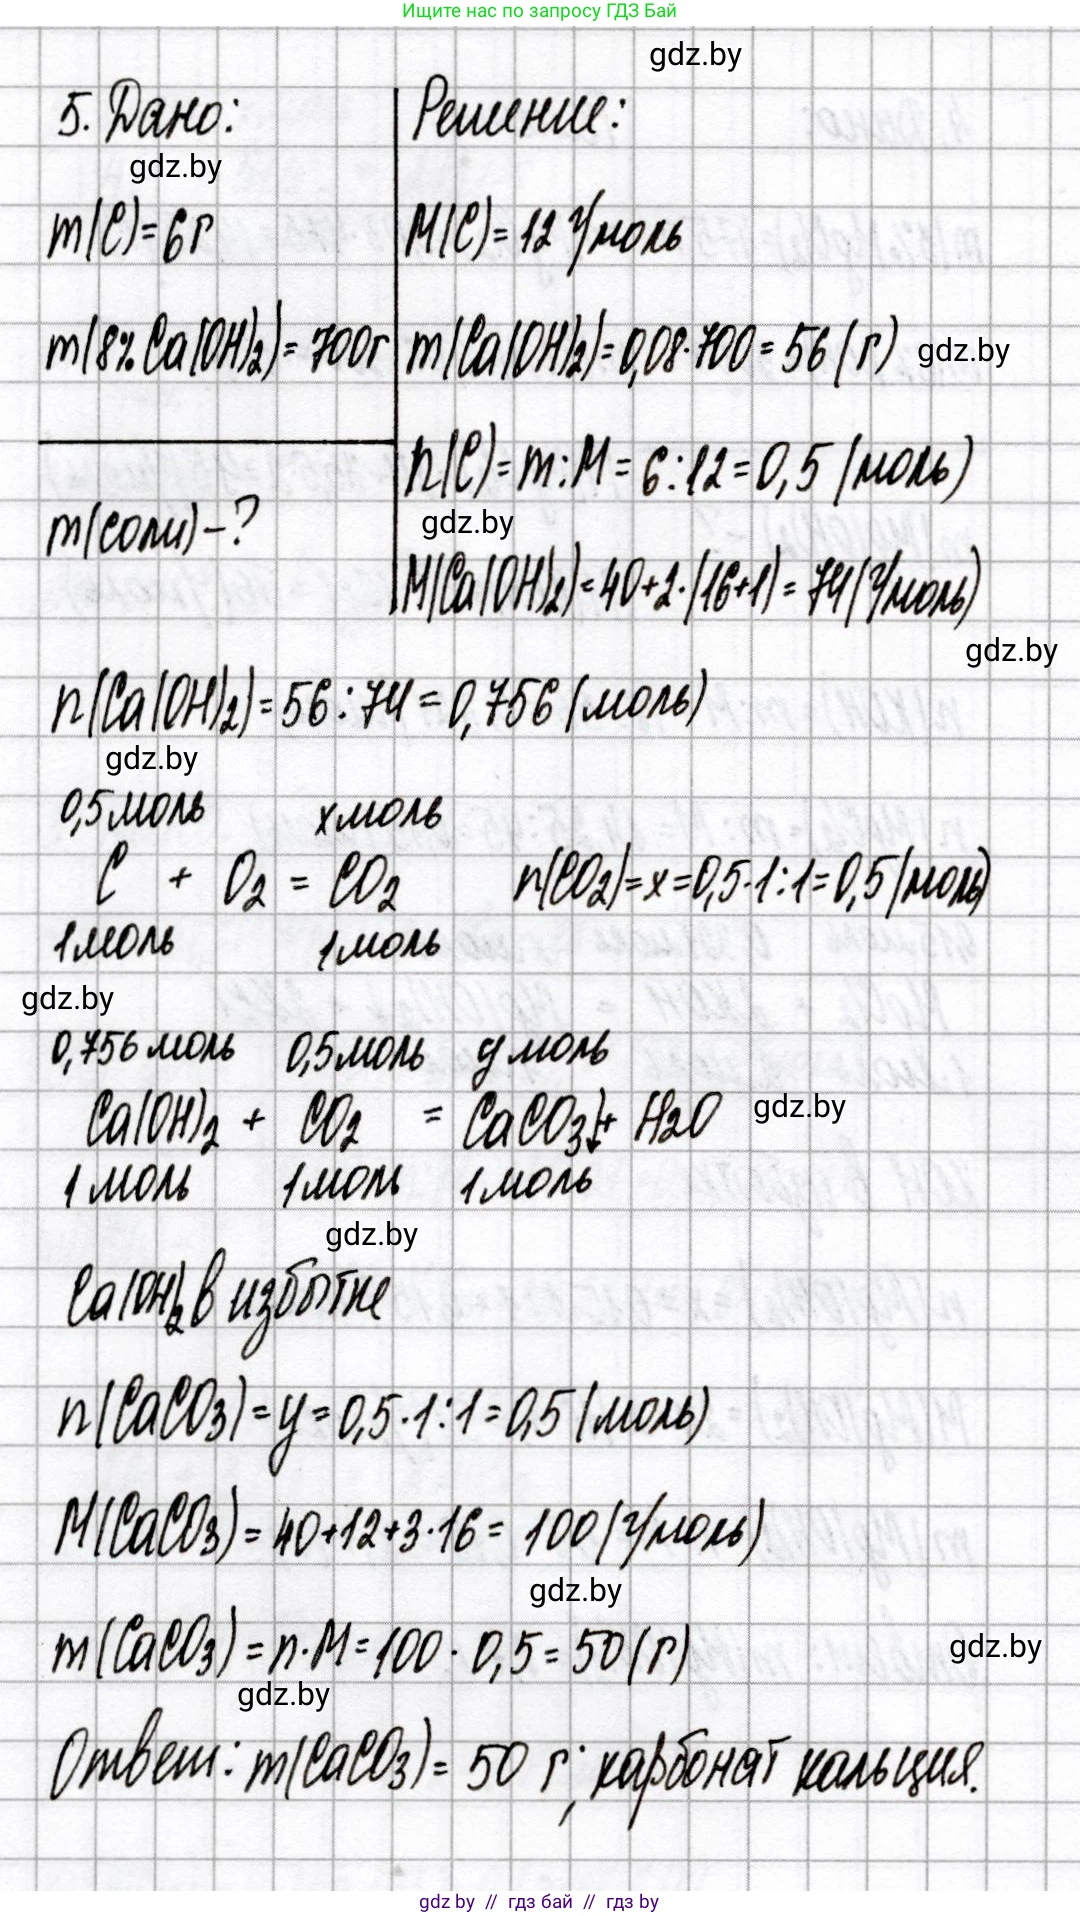 Ищите нас по запросу ГДЗ Бай
gdz.by
5. Дано:
gdz.by
m(C)=6г
m(8% Ca(OH)₂)=700г
m(соли)-?
Решение:
M(C)=12 г/моль
m(Ca(OH)₂)=0,08·700=56(г)
gdz.by
n(C)=m:M=6:12=0,5(моль)
gdz.by
M(Ca(OH)₂)=40+2·(16+1)=74(г/моль)
gdz.by
n(Ca(OH)₂)=56:74=0,756(моль)
gdz.by
0,5моль хмоль
C + O₂ = CO₂ n(CO₂)=x=0,5·1:1=0,5(моль)
1моль 1моль
gdz.by
0,756моль 0,5моль y моль
Ca(OH)₂ + CO₂ = CaCO₃↓+ H₂O
gdz.by
1 моль 1моль 1моль
gdz.by
Ca(OH)₂ в избытке
n(CaCO₃)=y=0,5·1:1=0,5(моль)
M(CaCO₃)=40+12+3·16=100(г/моль)
gdz.by
m(CaCO₃)=n·M=100·0,5=50(г)
gdz.by
gdz.by
Ответ: m(CaCO₃)=50 г; карбонат кальция.
gdz by // гдз бай // гдз by